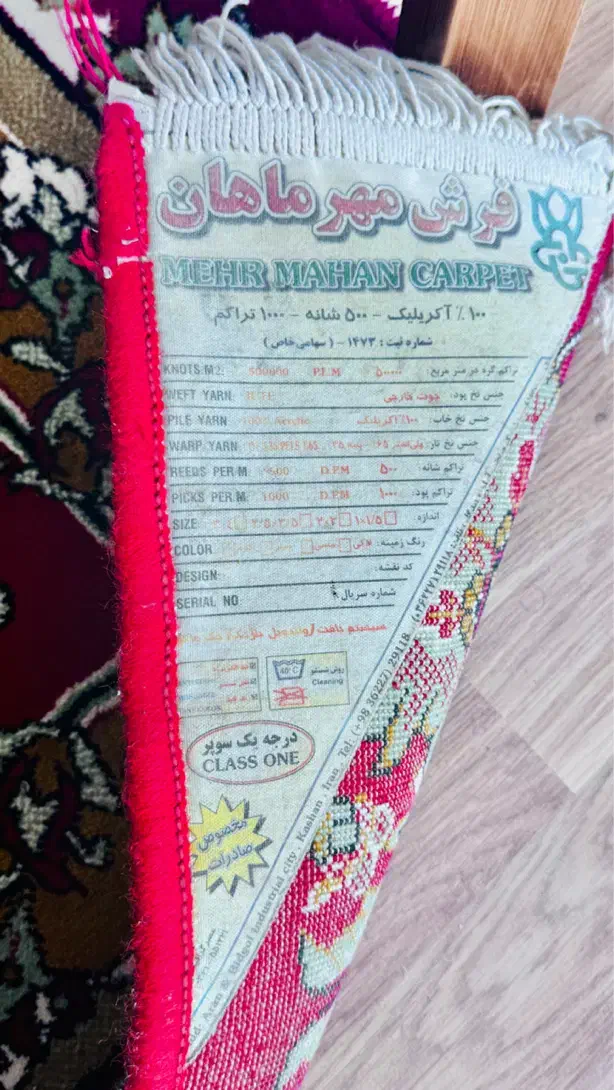 فرش مهر ماهان
MEHR MAHAN CARPET
۱۰۰ ٪ آکریلیک - ۵۰۰ شانه - ۱۰۰۰ تراکم
شماره ثبت : ۱۴۷۳ - ( سهامی خاص )
KNOTS M2: 500000 P.E.M ۵۰۰۰۰۰ تراکم گره در متر مربع:
WEFT YARN JUTE جوت خارجی جنس نخ پود:
PILE YARN 100% Acrylic ۱۰۰٪ اکریلیک جنس نخ خاب:
WARP YARN پلی استر ۶۵ جنس نخ تار:
REEDS PER.M 500 D.P.M ۵۰۰ تراکم شانه:
PICKS PER.M 1000 D.P.M ۱۰۰۰ تراکم پود:
SIZE ۲/۵/۳/۵ ۲×۳ ۱۰۱/۵ اندازه:
COLOR لاکی رنگ زمینه:
DESIGN: کد نقشه:
SERIAL NO شماره سریال:
سیستم بافت
40°C
روش شستشو
Cleaning
درجه یک سوپر
CLASS ONE
مخصوص
صادرات
Aran & Bidgol Industrial City, Kashan, Iran, Tel: (+98 36227) 29118